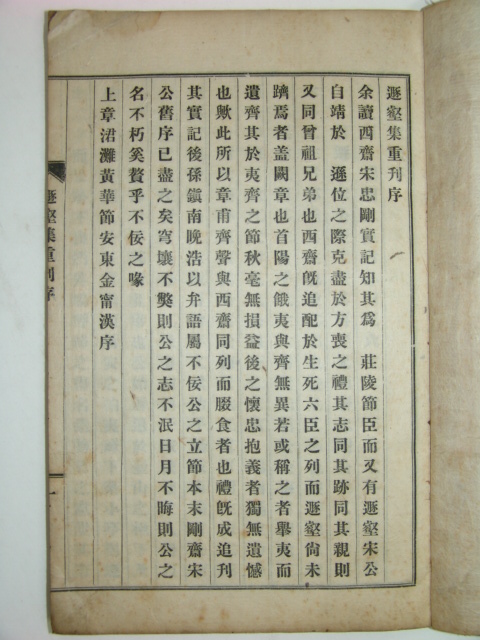 遯壑集重刊序
余讀西齋宋忠剛實記知其爲 莊陵節臣而又有遯壑宋公
自靖於 遜位之際克盡於方喪之禮其志同其跡同其親則
又同曾祖兄弟也西齋旣追配於生死六臣之列而遯壑尙未
躋焉者蓋闕章也首陽之餓夷與齊無異若或稱之者擧夷而
遺齊其於夷齊之節秋毫無損益後之懷忠抱義者獨無遺憾
也歟此所以章甫齊聲與西齋同列而腏食者也禮旣成追刊
其實記後孫鎭南晩浩以弁語屬不佞公之立節本末剛齋宋
公舊序已盡之矣穹壤不獘則公之志不泯日月不晦則公之
名不朽奚贅乎不佞之喙
上章涒灘黃華節安東金甯漢序
遯壑集重刊序
一